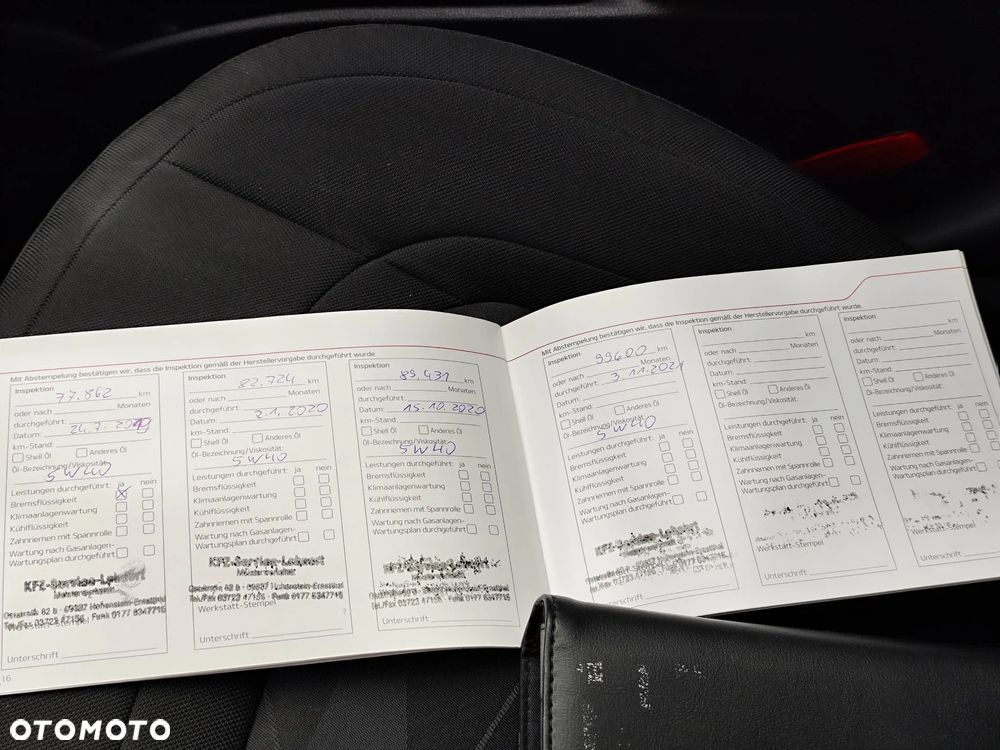 Mit Abstempelung bestätigen wir, dass die Inspektion gemäß der Herstellervorgabe durchgeführt wurde.
Inspektion
77.862 km
oder nach Monaten
durchgeführt:
Datum: 24.7. 2019
km-Stand:
Shell Öl Anderes Öl
Öl-Bezeichnung/Viskosität:
5W40
Leistungen durchgeführt: ja nein
Bremsflüssigkeit
Klimaanlagenwartung
Kühlflüssigkeit
Zahnriemen mit Spannrolle
Wartung nach Gasanlagen-
Wartungsplan durchgeführt
KFZ-Service-Lehnert
Meisterwerkstatt
Oststraße 62 b · 09337 Hohenstein-Ernstthal
Tel./Fax 03723 47156 · Funk 0177 6347715
Werkstatt-Stempel
Unterschrift
16
Inspektion
82.724 km
oder nach Monaten
durchgeführt:
Datum: 2.1. 2020
km-Stand:
Shell Öl Anderes Öl
Öl-Bezeichnung/Viskosität:
5W40
Leistungen durchgeführt: ja nein
Bremsflüssigkeit
Klimaanlagenwartung
Kühlflüssigkeit
Zahnriemen mit Spannrolle
Wartung nach Gasanlagen-
Wartungsplan durchgeführt
KFZ-Service-Lehnert
Meisterwerkstatt
62 b · 09337 Hohenstein-Ernstthal
Tel./Fax 03723 47156 · Funk 0177 6347715
Werkstatt-Stempel
Unterschrift
Inspektion
89.431 km
oder nach Monaten
durchgeführt:
Datum: 15.10. 2020
km-Stand:
Shell Öl Anderes Öl
Öl-Bezeichnung/Viskosität:
5W40
Leistungen durchgeführt: ja nein
Bremsflüssigkeit
Klimaanlagenwartung
Kühlflüssigkeit
Zahnriemen mit Spannrolle
Wartung nach Gasanlagen-
Wartungsplan durchgeführt
62 b · 09337 Hohenstein-Ernstthal
Tel./Fax 03723 47156 · Funk 0177 6347715
Unterschrift
Mit Abstempelung bestätigen wir, dass die Inspektion gemäß der Herstellervorgabe durchgeführt wurde.
Inspektion
99600 km
oder nach Monaten
durchgeführt: 3.11.2021
Datum:
km-Stand:
Shell Öl Anderes Öl
Öl-Bezeichnung/Viskosität:
5W40
Leistungen durchgeführt: ja nein
Bremsflüssigkeit
Klimaanlagenwartung
Kühlflüssigkeit
Zahnriemen mit Spannrolle
Wartung nach Gasanlagen-
Wartungsplan durchgeführt
Unterschrift
Inspektion
km
oder nach Monaten
durchgeführt:
Datum:
km-Stand:
Shell Öl Anderes Öl
Öl-Bezeichnung/Viskosität:
Leistungen durchgeführt: ja nein
Bremsflüssigkeit
Klimaanlagenwartung
Kühlflüssigkeit
Zahnriemen mit Spannrolle
Wartung nach Gasanlagen-
Wartungsplan durchgeführt
Werkstatt-Stempel
Unterschrift
Inspektion
km
oder nach Monaten
durchgeführt:
Datum:
km-Stand:
Shell Öl Anderes Öl
Öl-Bezeichnung/Viskosität:
Leistungen durchgeführt: ja nein
Bremsflüssigkeit
Klimaanlagenwartung
Kühlflüssigkeit
Zahnriemen mit Spannrolle
Wartung nach Gasanlagen-
Wartungsplan durchgeführt
Werkstatt-Stempel
Unterschrift
OTOMOTO